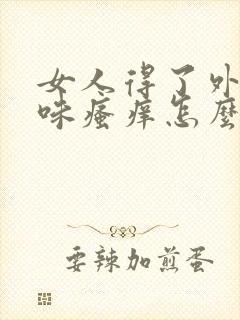 女人得了外
咪瘙痒怎麼
要辣加煎蛋